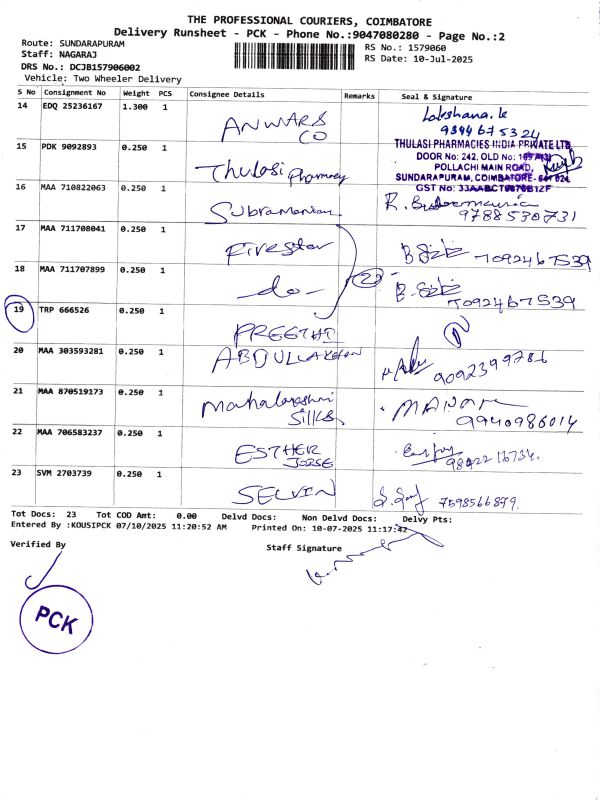 THE PROFESSIONAL COURIERS, COIMBATORE
Delivery Runsheet - PCK - Phone No.:9047080280 - Page No.:2
Route: SUNDARAPURAM
RS No.: 1579060
Staff: NAGARAJ
RS Date: 10-Jul-2025
DRS No.: DCJB157906002
Vehicle: Two Wheeler Delivery
S No Consignment No Weight PCS Consignee Details Remarks Seal & Signature
14 EDQ 25236167 1.300 1 ANWARS CO Lakshana. k
9344675324
15 PDK 9092893 0.250 1 Thulasi Pharmacy
THULASI PHARMACIES INDIA PRIVATE LTD
DOOR No: 242, OLD No:
POLLACHI MAIN ROAD,
SUNDARAPURAM, COIMBATORE-641 024
GST No:
16 MAA 710822063 0.250 1 Subramanian R.
9788530731
17 MAA 711708041 0.250 1 Fivestar 7092467539
18 MAA 711707899 0.250 1 -do- 2 7092467539
19 TRP 666526 0.250 1 PREETHI N
20 MAA 303593281 0.250 1 ABDULLA 9092399786
21 MAA 870519173 0.250 1 Mahalakshmi Silks
9940986014
22 MAA 706583237 0.250 1 ESTHER
23 SVM 2703739 0.250 1 SELVIN 7598566879.
Tot Docs: 23 Tot COD Amt: 0.00 Delvd Docs: Non Delvd Docs: Delvy Pts:
Entered By :KOUSIPCK 07/10/2025 11:20:52 AM Printed On: 10-07-2025 11:17:42
Verified By
Staff Signature
PCK